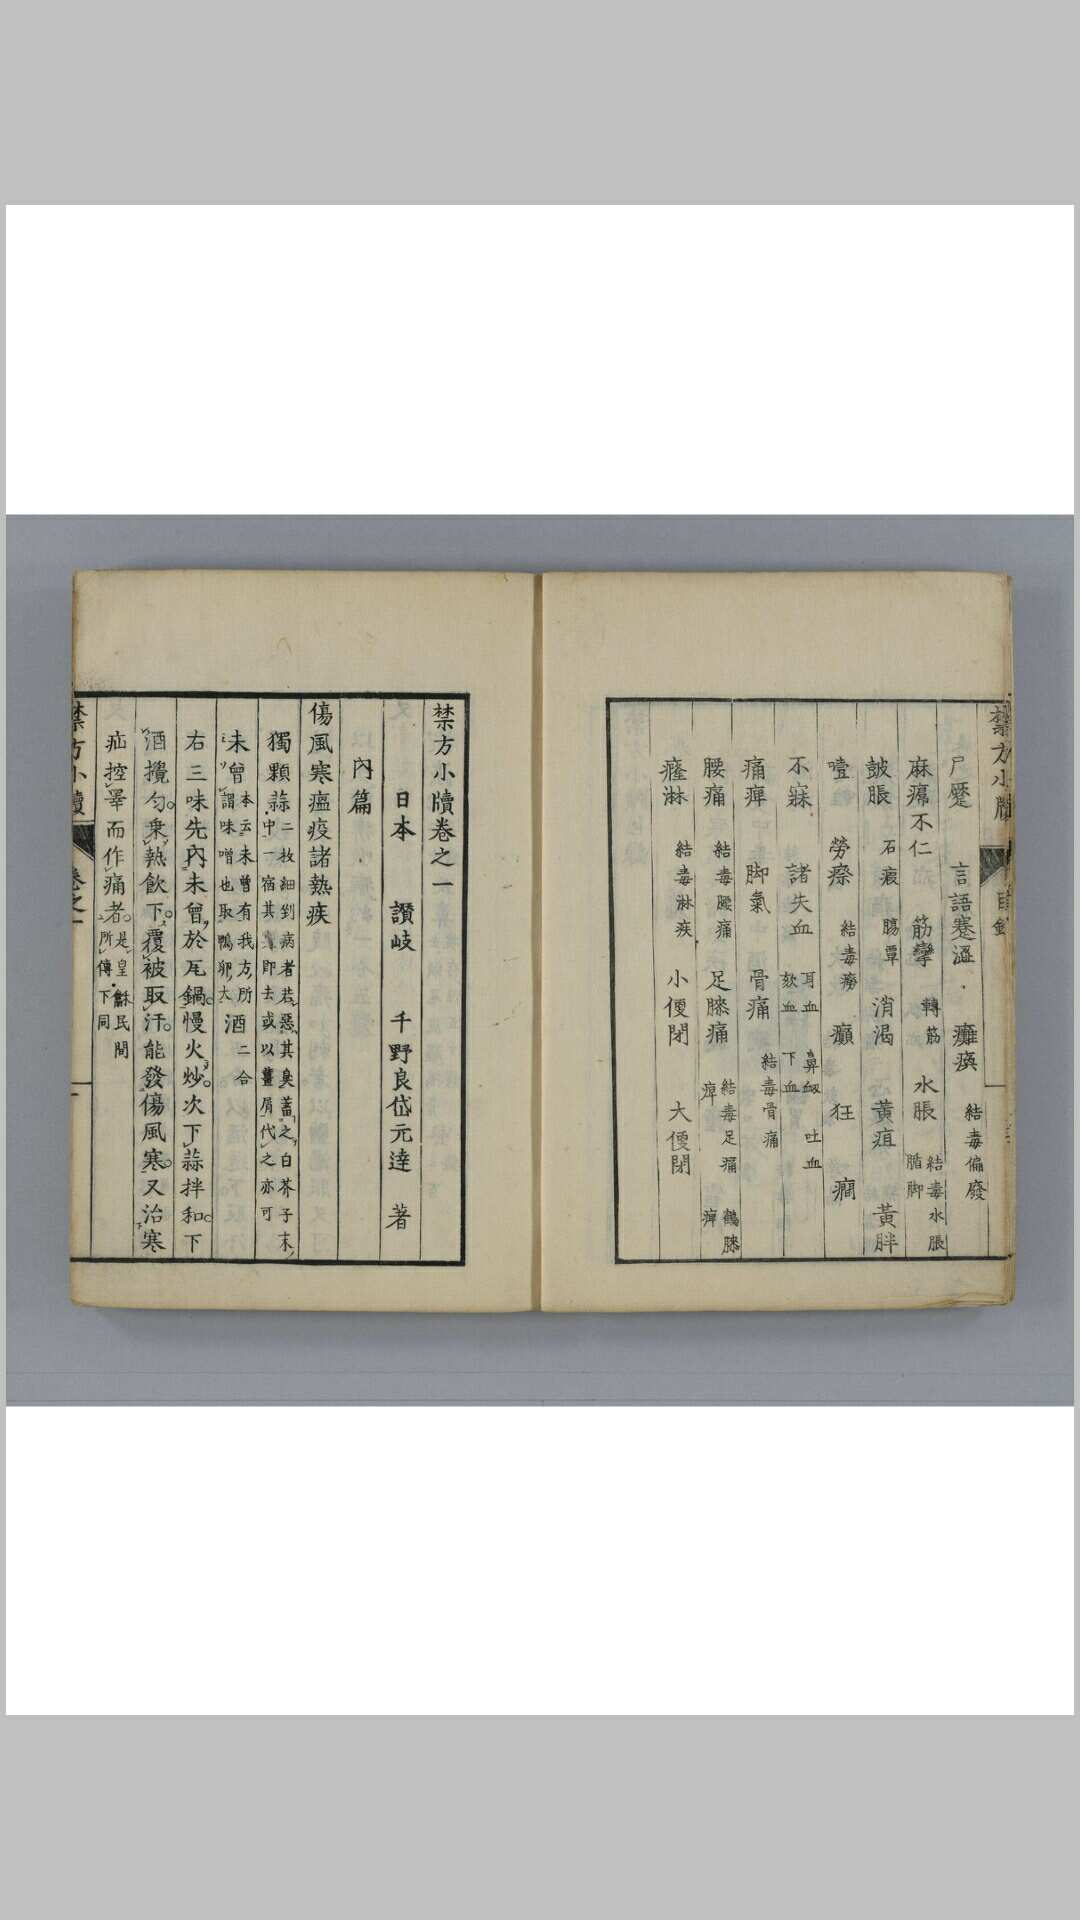 禁方小牘 目錄
尸蹷 言語蹇澁 癱瘓 結毒偏廢
麻痺不仁 筋攣 轉筋 水脹 結毒水脹 脚
皷脹 石瘕 腸覃 消渴 黃疸 黃胖
噎 勞瘵 結毒癆 癲 狂 癇
不寐 諸失血 耳血 鼻衂 吐血 欬血 下血
痛痺 脚氣 骨痛 結毒骨痛
腰痛 結毒腰痛 足膝痛 結毒足痛 鶴膝 痺 痺
癃淋 結毒淋疾 小便閉 大便閉
禁方小牘卷之一
日本 讚岐 千野良岱元達 著
內篇
傷風寒瘟疫諸熱疾
獨顆蒜 二枚細剉病者若惡其臭蓄之白芥子末 中一宿其 即去或以薑屑代之亦可
未曾 本云未曾有我方所 謂味噌也取鴨卵大 酒 二合
右三味先內未曾於瓦鍋慢火炒次下蒜拌和下
酒攪勻乘熱飲下覆被取汗能發傷風寒又治寒
疝控睪而作痛者 是皇龢民間 所傳下同
禁方小牘 卷之一 一